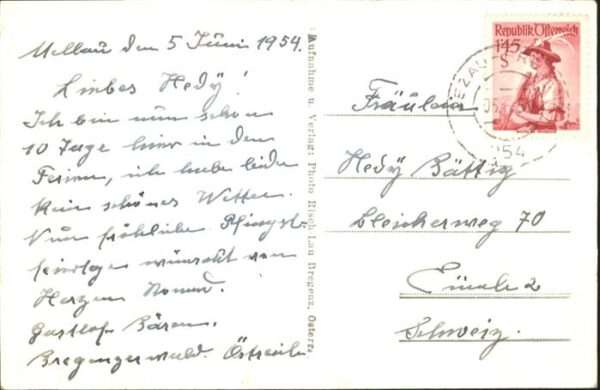 Mellau den 5 Juni 1954.
Liebes Hedÿ!
Ich bin nun schon
10 Tage hier in den
Ferien, ich habe leider
kein schönes Wetter.
Nun fröhliche Pfingst-
feiertage wünscht von
Herzen
Gasthof Bären.
Bregenzerwald. Östreich.
Aufnahme u. Verlag: Photo Risch-Lau Bregenz, Österr.
Republik Österreich
1'45
S
BEZAU
54
Fräulein
Hedÿ Bättig
Bleicherweg 70
Zürich 2
Schweiz.